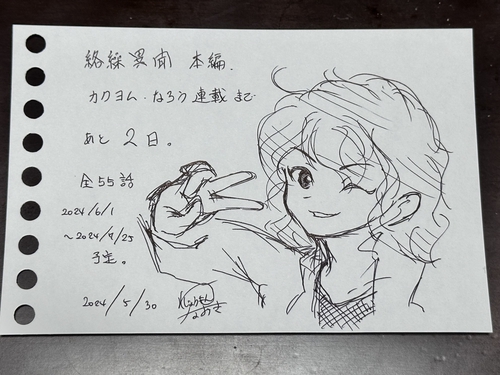 絡繰異聞 本編.
カクヨム・なろう連載まで
あと 2日。
全55話
2024/6/1
~2024/7/25
予定。
2024/5/30
なおき